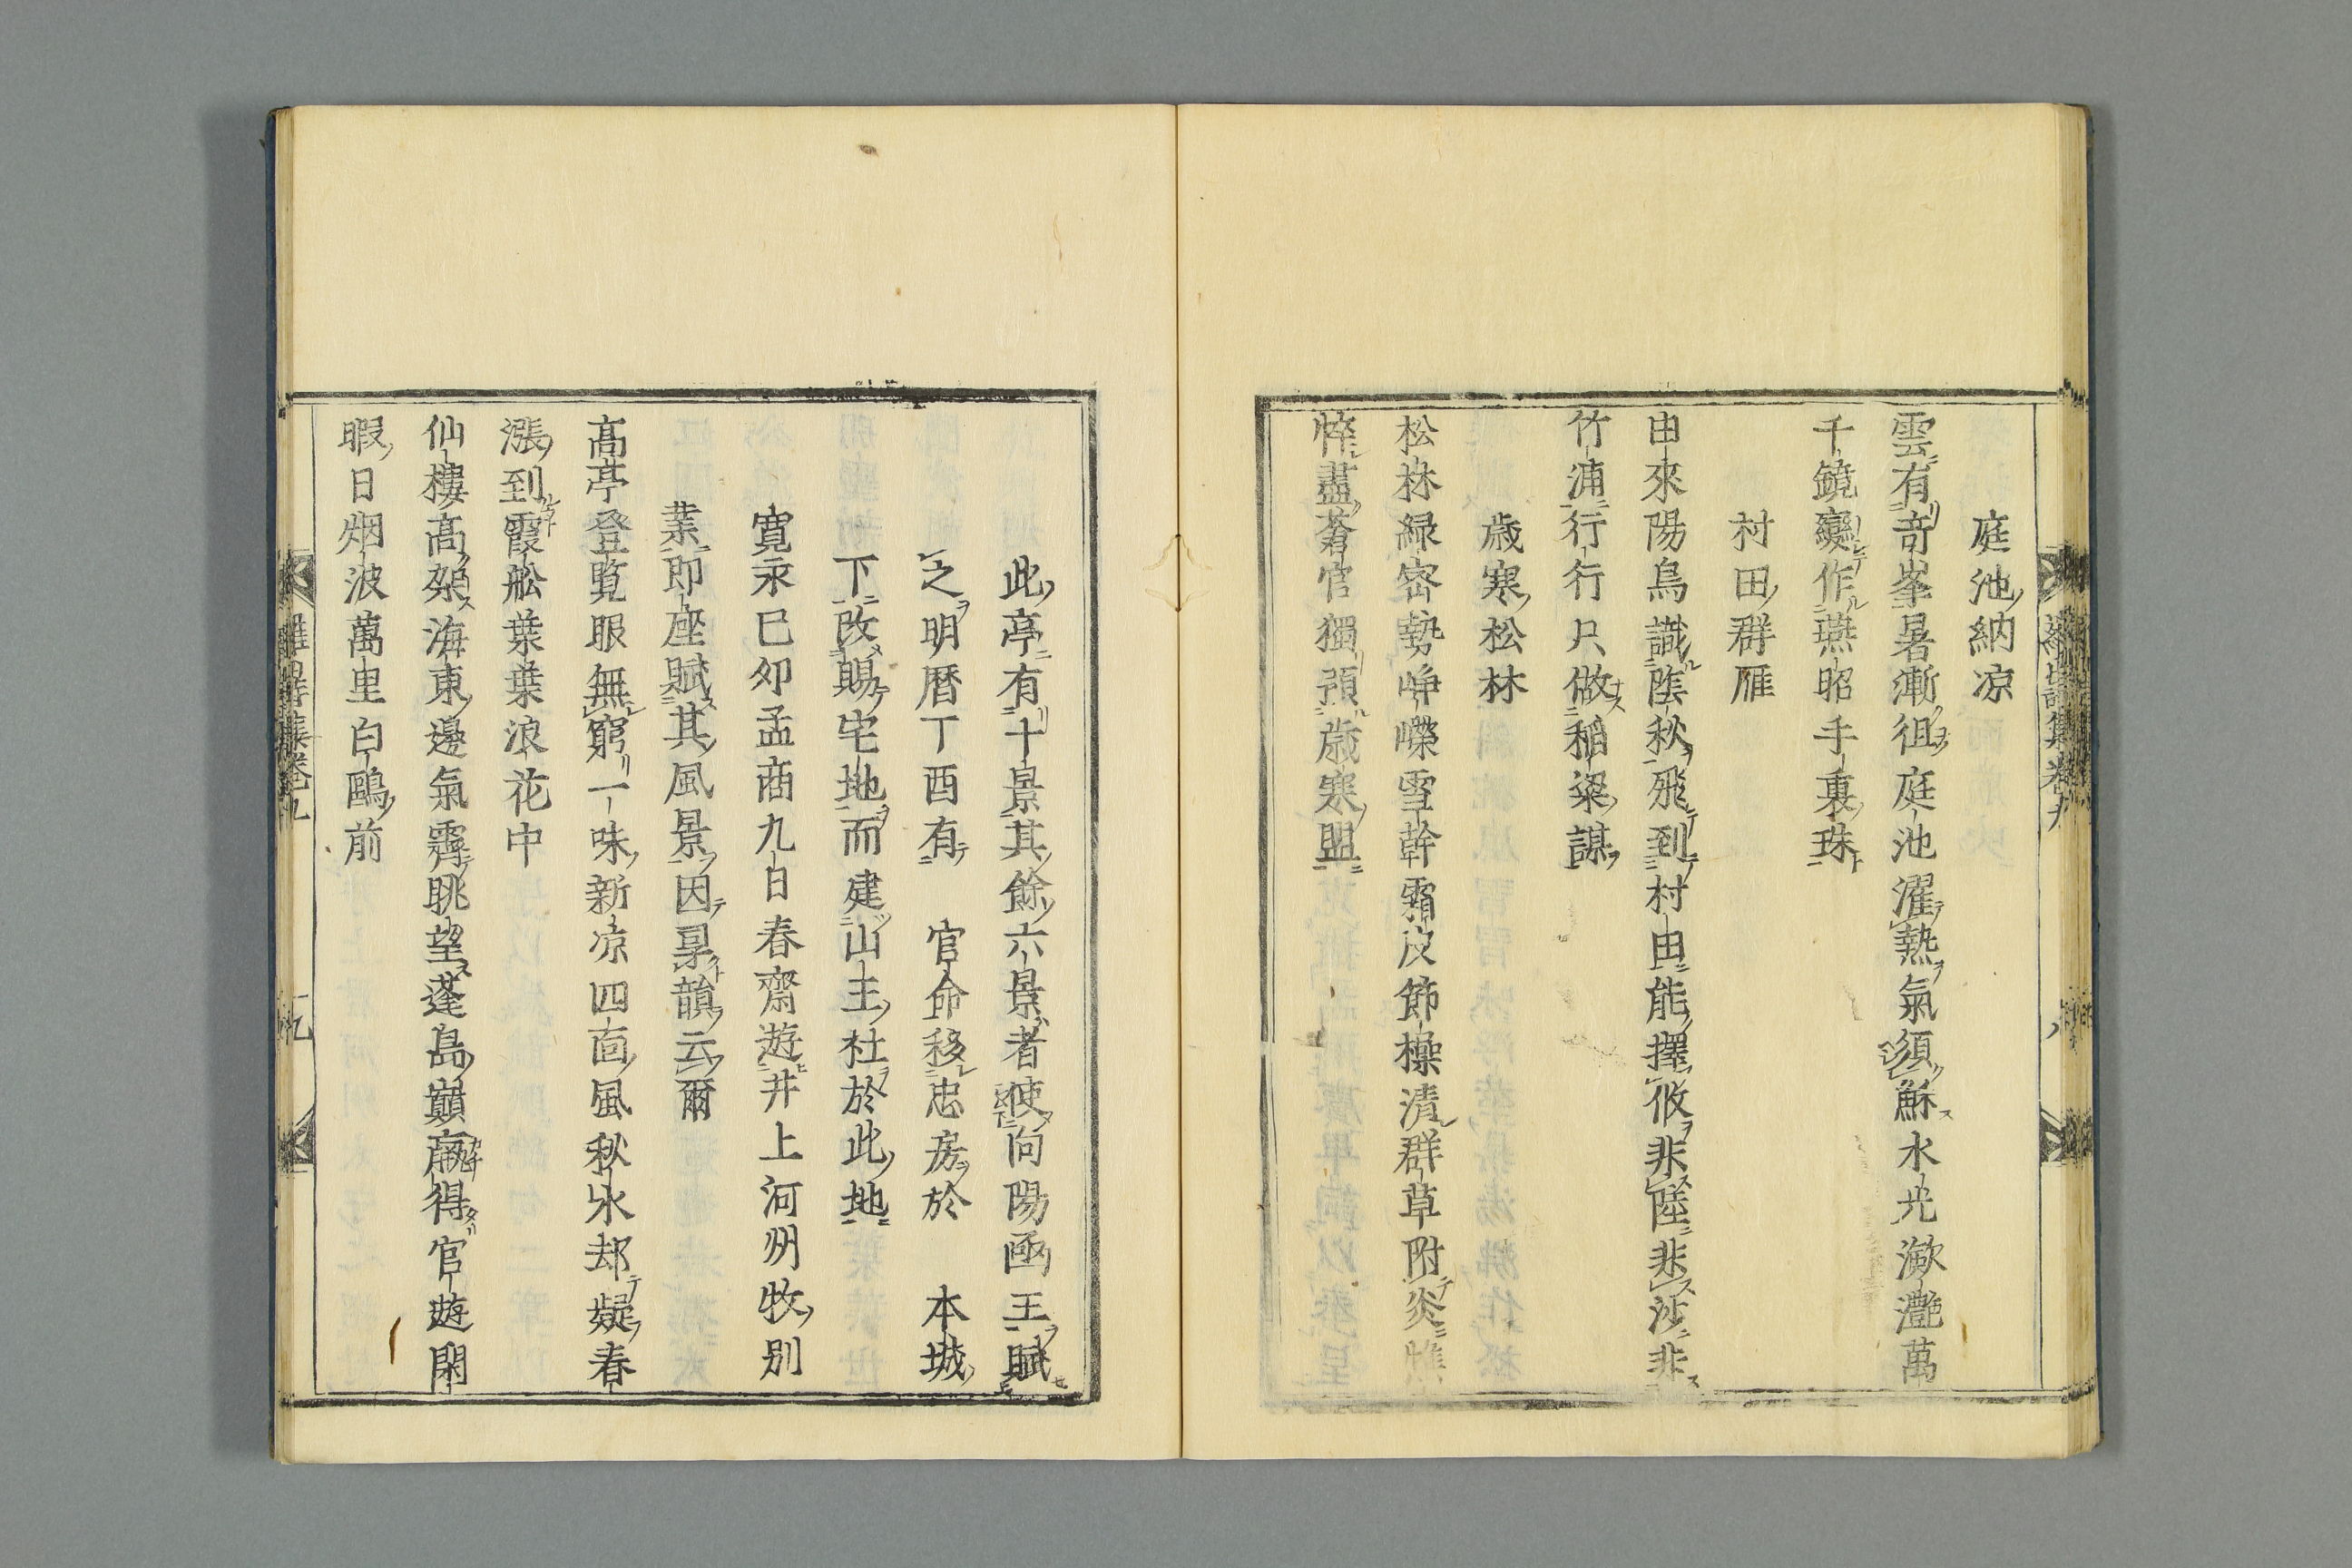 庭池納凉
雲有奇峯暑漸徂庭池濯熱氣須穌水光瀲灩萬
千鏡變作璑昭手裏珠
村田群雁
由來陽鳥識陰秋飛到村田能擇攸非陸非沙非
竹浦行行只做稲粱謀
歳寒松林
松林緑密勢崢嶸雪幹霜皮節操清群草附炎憔
悴盡蒼官獨預歳寒盟
此亭有十景其餘六景者使向陽函三賦
之明暦丁酉有 官命移忠房於 本城
下改賜宅地而建山王社於此地
寛永己卯孟商九日春齋遊井上河州牧別
業即座賦其風景因具韻云爾
髙亭登覧眼無窮一味新凉四面風秋水却疑春
漲到霞舩葉葉浪花中
仙樓髙架海東邊氣霽眺望蓬島巓贏得官遊閑
暇日烟波萬里白鷗前